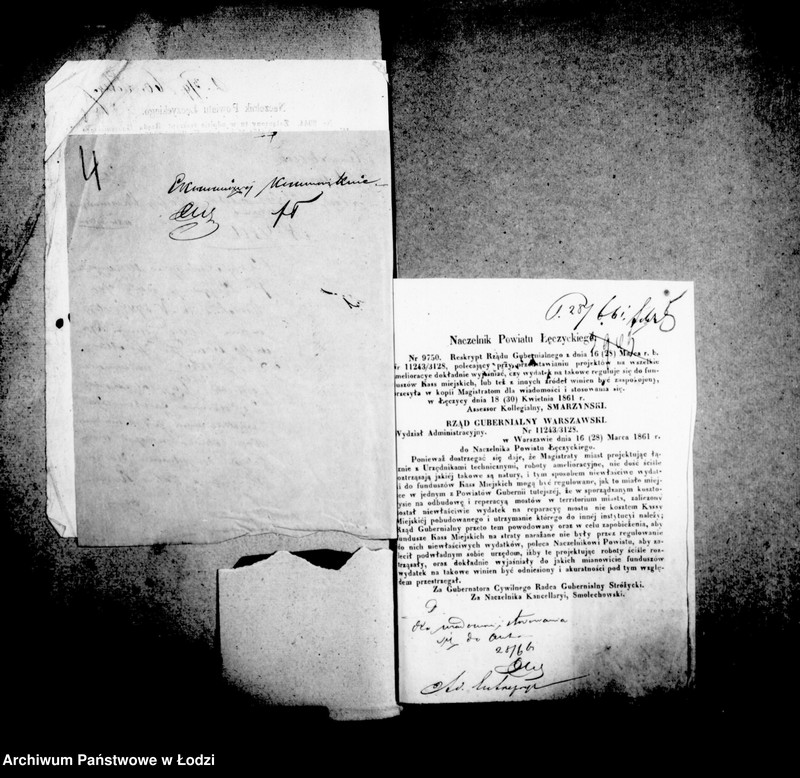 4
Naczelnik Powiatu Łęczyckiego.
Nr 9750. Reskrypt Rządu Gubernialnego z dnia 16 (28) Marca r. b.
Nr 11243/3128, polecający przy przedstawianiu projektów na wszelkie
amelioracye dokładnie wyjaśniać, czy wydatek na takowe reguluje się do fun-
duszów Kass miejskich, lub też z innych źródeł winien być zaspokojony,
przesyła w kopii Magistratom dla wiadomości i stosowania się.
w Łęczycy dnia 18 (30) Kwietnia 1861 r.
Assessor Kollegialny, SMARZYŃSKI.
RZĄD GUBERNIALNY WARSZAWSKI.
Wydział Administracyjny. Nr 11243/3128.
w Warszawie dnia 16 (28) Marca 1861 r.
do Naczelnika Powiatu Łęczyckiego.
Ponieważ dostrzegać się daje, że Magistraty miast projektując łą-
cznie z Urzędnikami technicznymi, roboty amelioracyjne, nie dość ściśle
roztrząsają jakiej takowe są natury, i tym sposobem niewłaściwe wydat-
ki do funduszów Kass Miejskich mogą być regulowane, jak to miało miej-
sce w jednym z Powiatów Gubernii tutejszej, że w sporządzanym koszto-
rysie na odbudowę i reperacyą mostów w territorium miasta, zaliczony
został niewłaściwie wydatek na reparacyę mostu nie kosztem Kassy
Miejskiej pobudowanego i utrzymanie którego do innéj instytucyi należy;
Rząd Gubernialny przeto tem powodowany oraz w celu zapobieżenia, aby
fundusze Kass Miejskich na straty narażane nie były przez regulowanie
do nich niewłaściwych wydatków, poleca Naczelnikowi Powiatu, aby za-
lecił podwładnym sobie urzędom, iżby te projektując roboty ściśle roz-
trząsały, oraz dokładnie wyjaśniały do jakich mianowicie funduszów
wydatek na takowe winien być odniesiony i akuratności pod tym wzglę-
dem przestrzegał.
Za Gubernatora Cywilnego Radca Gubernialny Stróżycki.
Za Naczelnika Kancellaryi, Smolechowski.
dla wiadomości stosowania
się do Akt
28/6 61
Archiwum Państwowe w Łodzi